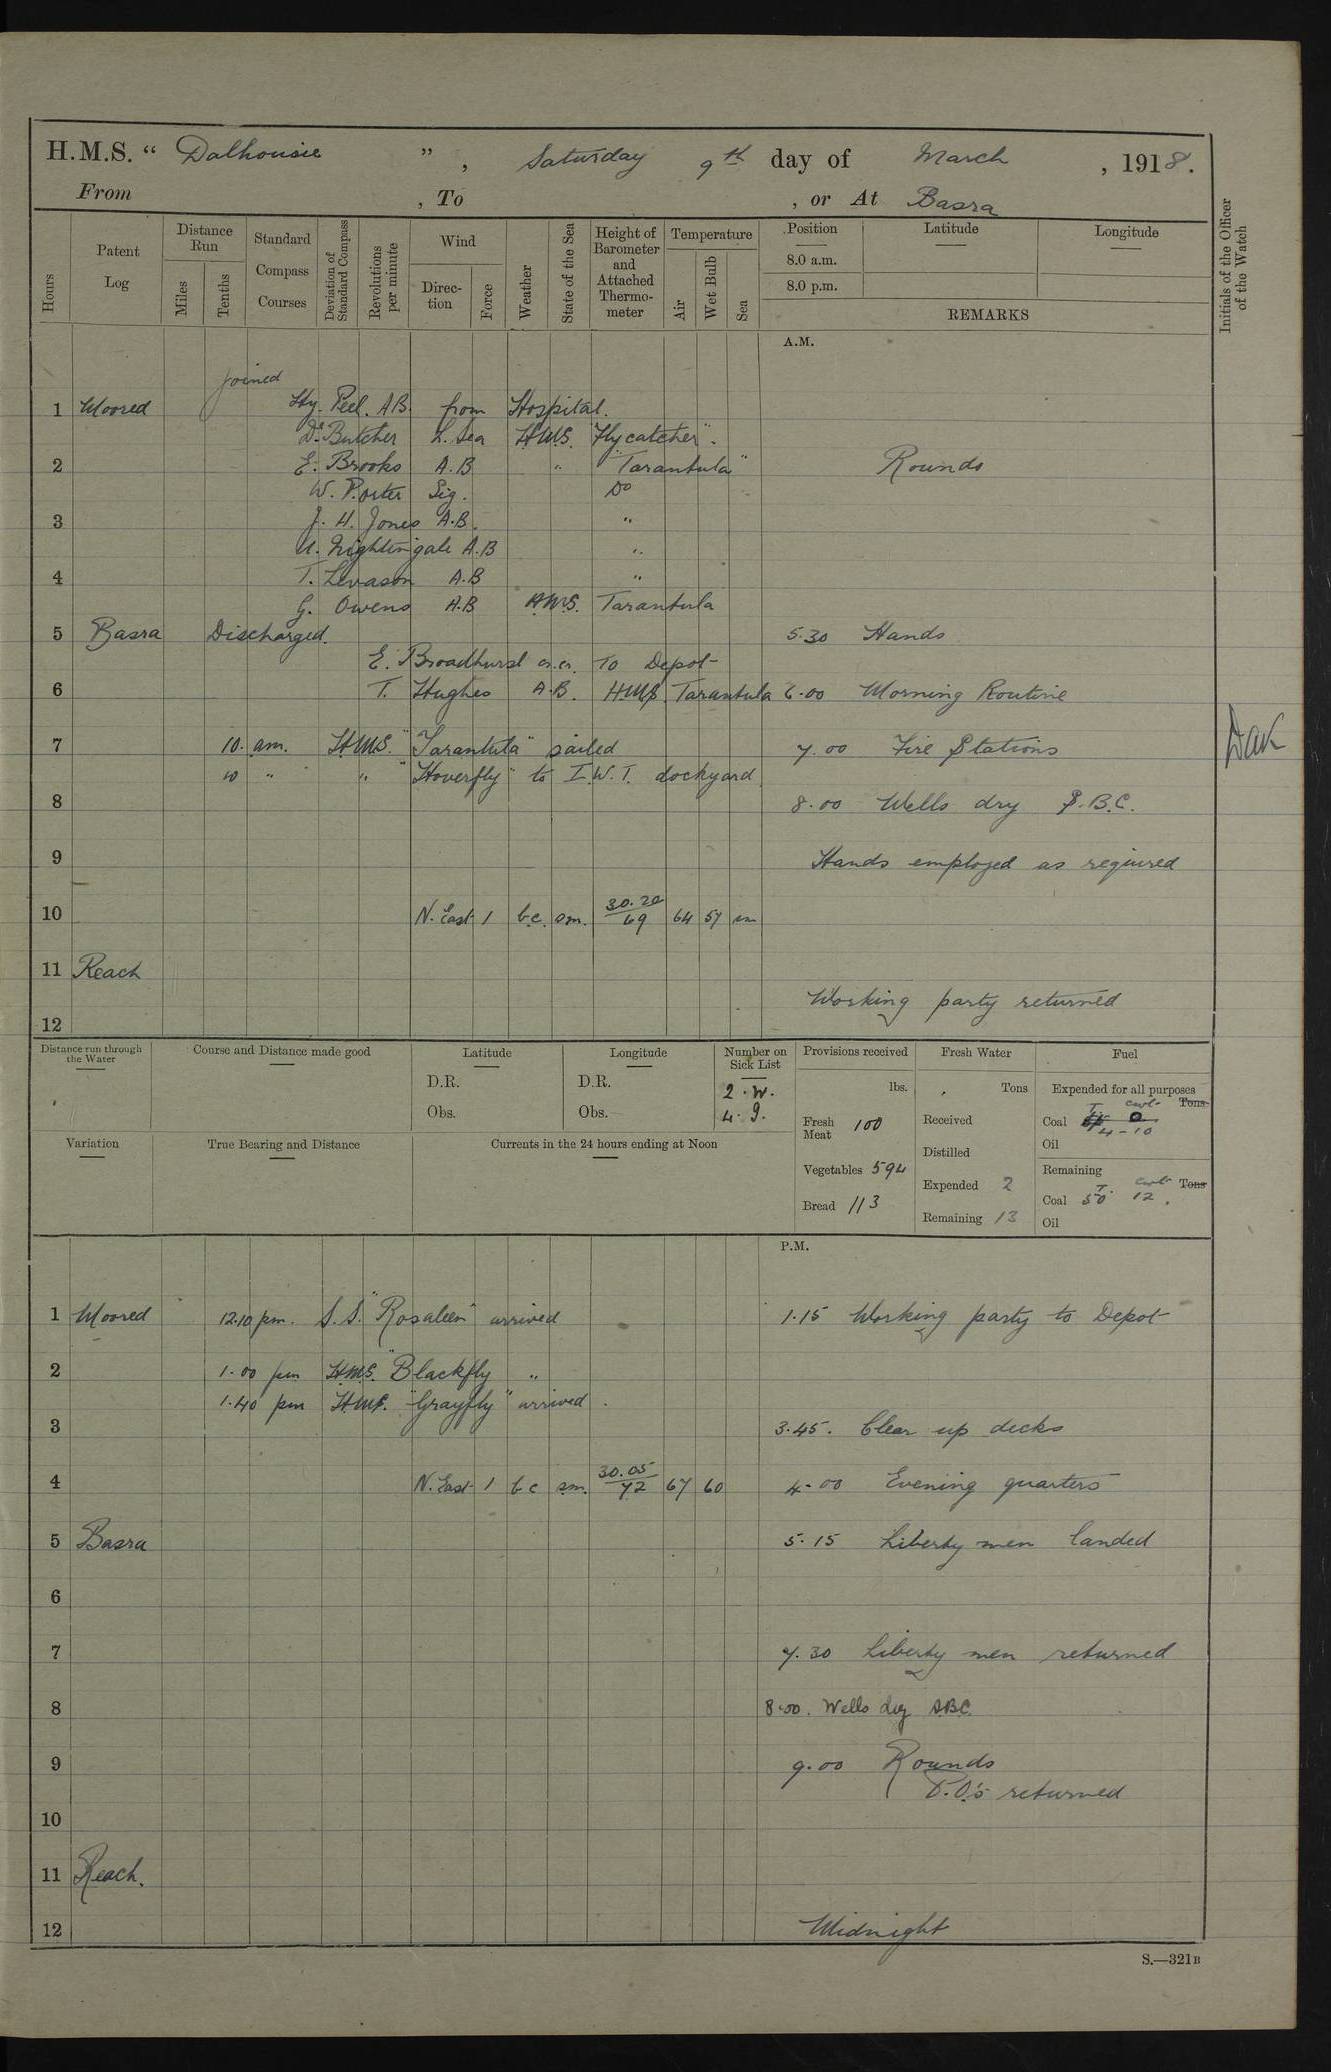 H.M.S. “ Dalhousie ” , Saturday 9th day of March , 1918.
From , To , or At Basra
Hours
Patent Log
Distance Run
Miles
Tenths
Standard Compass Courses
Deviation of Standard Compass
Revolutions per minute
Wind
Direction
Force
Weather
State of the Sea
Height of Barometer and Attached Thermometer
Temperature
Air
Wet Bulb
Sea
Position
8.0 a.m.
8.0 p.m.
Latitude
Longitude
REMARKS
Initials of the Officer of the Watch
A.M.
Joined
1 Moored Hy. Peel. A.B. from Hospital.
Butcher L. Sea H.M.S. "Flycatcher".
2 E. Brooks A.B " "Tarantula" Rounds
W. Porter Sig. Do
3 J. H. Jones A.B. "
Nightingale A.B "
4 T. Levason A.B "
G. Owens A.B H.M.S. Tarantula
5 Basra Discharged. 5.30 Hands
E. Broadhurst To Depot
6 T. Hughes A.B. H.M.S. Tarantula 6.00 Morning Routine
7 10. am. H.M.S. "Tarantula" sailed 7.00 Fire Stations
10 " " "Hoverfly" to I.W.T. dockyard
8 8.00 Wells dry S.B.C.
9 Hands employed as required
10 N. East 1 b.c. sm. 30.20/69 64 57
11 Reach
Working party returned
12
Distance run through the Water
Course and Distance made good
Latitude
D.R.
Obs.
Longitude
D.R.
Obs.
Number on Sick List
2. W.
4. 9.
Provisions received
lbs.
Fresh Meat 100
Vegetables 594
Bread 113
Fresh Water
Tons
Received
Distilled
Expended 2
Remaining 13
Fuel
Expended for all purposes
T. cwt. Tons
Coal 4 - 10
Oil
Remaining
T. cwt. Tons
Coal 50 12.
Oil
Variation
True Bearing and Distance
Currents in the 24 hours ending at Noon
P.M.
1 Moored 12.10 pm. S.S. "Rosaleen" arrived 1.15 Working party to Depot
2 1.00 pm H.M.S. "Blackfly "
1.40 pm H.M.S. "Grayfly" arrived.
3 3.45. Clear up decks
4 N. East 1 b c sm. 30.05/72 67 60 4.00 Evening quarters
5 Basra 5.15 Liberty men landed
6
7 7.30 Liberty men returned
8 8.00. Wells dry S.B.C.
9 9.00 Rounds
P.O.'s returned
10
11 Reach.
12 Midnight
S.—321B